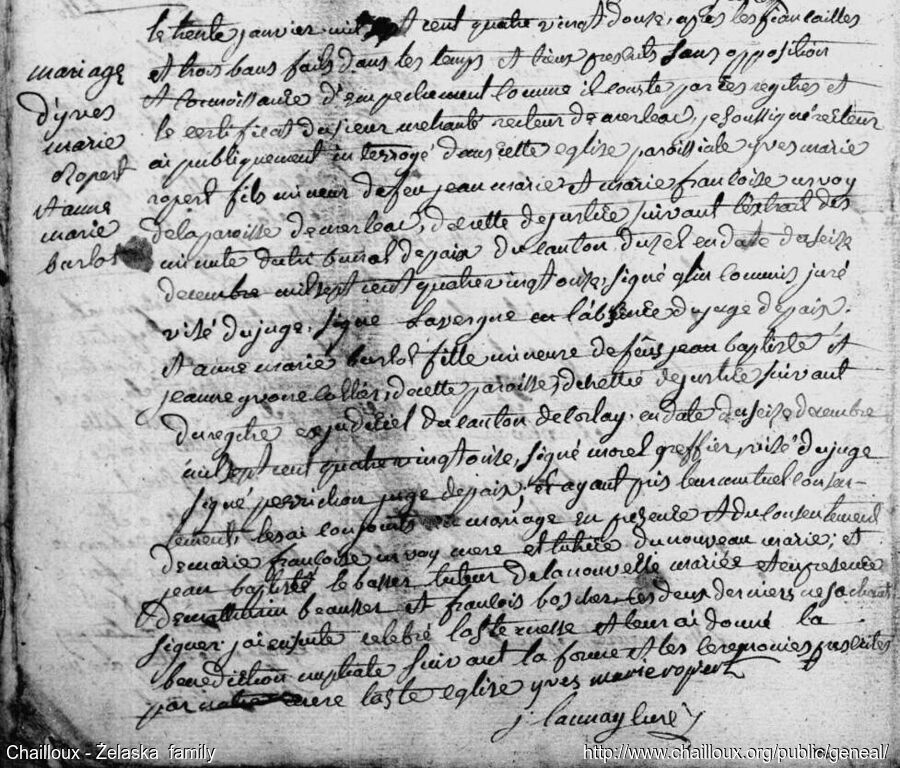 mariage
d'yves
marie
Ropert
et anne
marie
burlot
le trente janvier mil sept cent quatre vingt douze, apres les fiancailles
et trois bans faits dans les temps et lieux prescrits sans opposition
et connoissance d'empechement comme il conste par les registres et
le certificat du sieur mehauté recteur de merleac, je soussigné recteur
ai publiquement interrogé dans cette eglise paroissiale yves marie
ropert fils mineur de feu jean marie et marie francoise urvoy
de la paroisse de merleac, decretté de justice suivant l'extrait des
minute du tribunal de paix du canton d'uzel en date du seize
decembre mil sept cent quatre vingt onze, signé commis juré
visé du juge, signé Lavergne en l'absence du juge de paix.
et anne marie burlot fille mineure de feus jean baptiste et
jeanne yvonne de cette paroisse, decrettée de justice suivant
du registre du canton de corlay, en date du seize decembre
mil sept cent quatre vingt onze, signé morel greffier, visé du juge
signé perrichon juge de paix, et ayant pris leur mutuel consen-
tement, les ai conjoints en mariage en presence et du consentement
de marie francoise urvoy mere et tutrice du nouveau marié; et
jean baptiste le basser tuteur de la nouvelle mariée et en presence
de mathurin beausser et francois boscher, ces deux derniers ne sachant
signer, j'ai ensuite celebré la ste messe et leur ai donné la
benediction nuptiale suivant la forme et les ceremonies prescrites
par notre mere la ste eglise yves marie ropert
j. launay curé
Chailloux - Želaska family
http://www.chailloux.org/public/geneal/